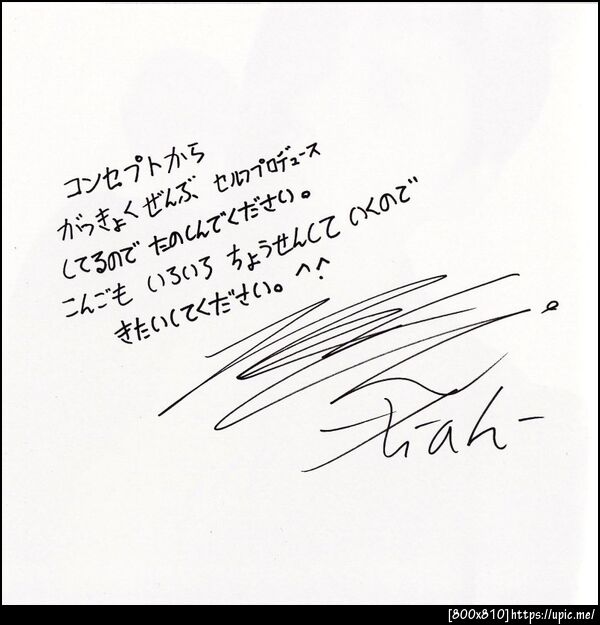 コンセプトから
がっきょくぜんぶ セルフプロデュース
してるので たのしんでください。
こんごも いろいろ ちょうせんして いくので
きたいしてください。^.^
[800x810]https://upic.me/